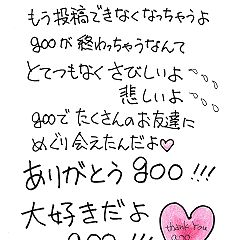 もう投稿できなくなっちゃうよ
gooが終わっちゃうなんて
とてつもなくさびしいよ
悲しいよ
gooでたくさんのお友達に
めぐり会えたんだよ♡
ありがとうgoo!!!
大好きだよ
goo!!!
thank you
goo